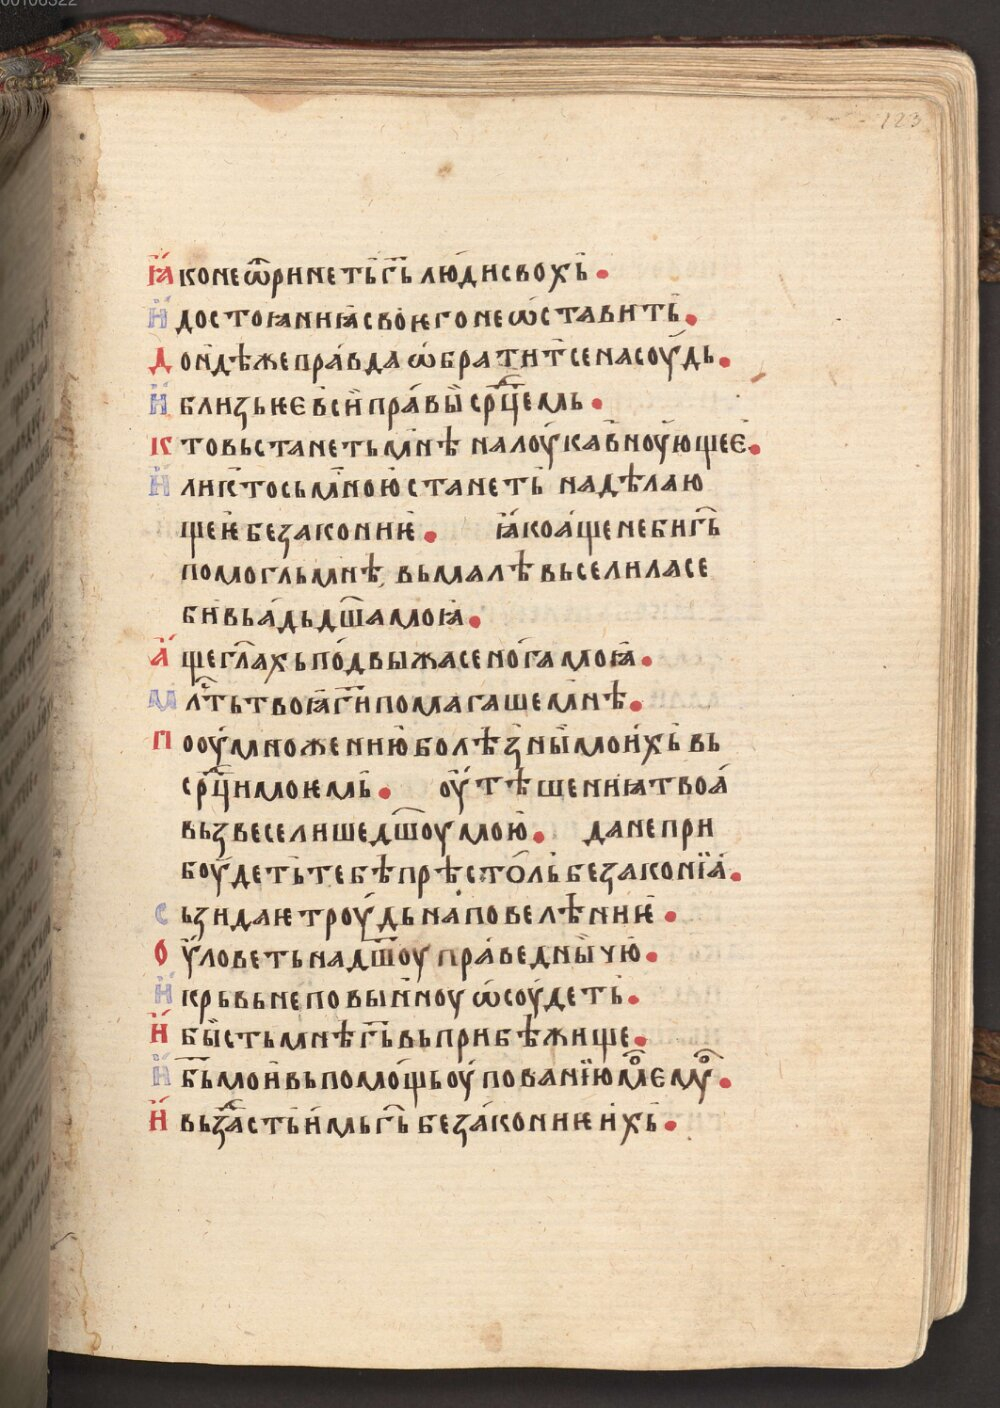 00106322
123
Ꙗ҆коне ѿринеть г҃ь люди свохь.
И҆ достоꙗниꙗ своѥго не ѡ҆ставить.
Дон҆дѣже пра́вда ѡ҆братит се на соу́дь.
И҆ близь ѥ в҆си пра́вы҆ ср҃цемь.
Кто вьстанеть мнѣ на лоу́кав҆ноую҆щеѥ.
И҆ли кто сь м҆ною҆ станеть на дѣлаю
щеѥ безакониѥ. Ꙗ҆ко а҆ще не би г҃ь
помогль мнѣ, вьмалѣ вьселила се
би вь а́дь дш҃а моꙗ.
А҆ще гл҃ахь по́двыжа се нога моꙗ҆.
Мл҃ть твоꙗ г҃и помагаше м҆нѣ.
По оу҆множению҆ болѣз҆ны҆ мои҆хь вь
ср҃ци моѥмь. оу҆тѣшениꙗ твоа҆
вьзвеселише дш҃оу мою҆. да не при
боу́деть тебѣ прѣстоль безаконїа.
Сьзидаѥ троу́дь на повелѣниѥ.
Оу҆ловеть на дш҃оу пра́ведны҆чю҆.
И҆ крьвь неповын҆ноу ѡ҆соу́деть.
И҆ бы҆сть мнѣ г҃ь вь прибѣжище.
И҆ б҃ь мои҆ вь помо́щь оу҆пованїю моемꙋ.
И҆ вьзда́сть и҆мь г҃ь беза́кониѥ и҆хь.